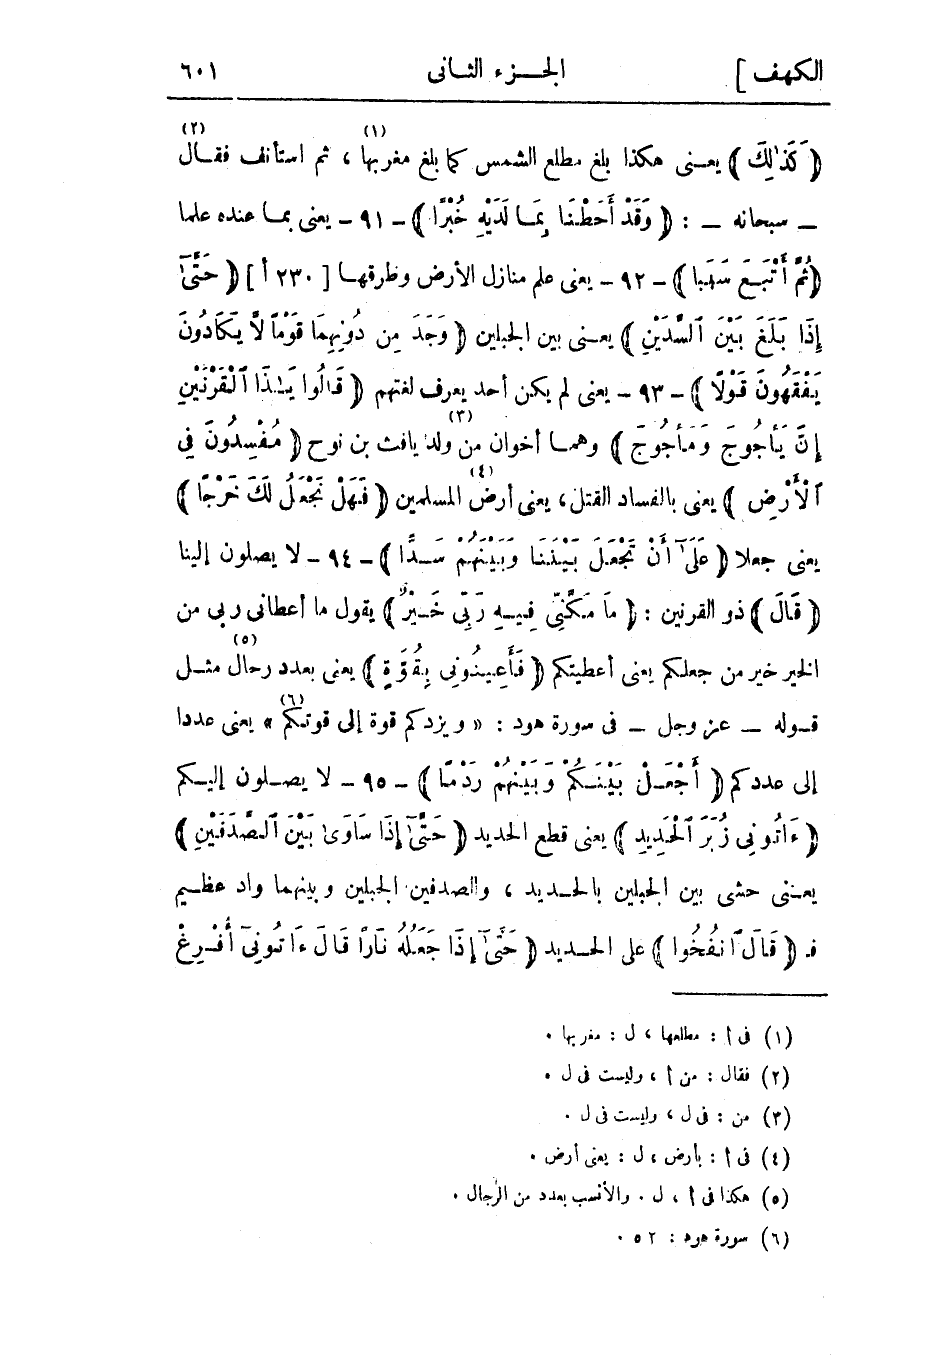 الكهف ] الجـــزء الثـانى ٦٠١
﴿ كَذَٰلِكَ ﴾ يعـنى هكذا بلغ مطلع الشمس كما بلغ مغربها (١) ، ثم استأنف فقـال (٢)
ـ سبحانه ـ : ﴿ وَقَدْ أَحَطْنَا بِمَا لَدَيْهِ خُبْرًا ﴾ - ٩١ - يعنى بمـا عنده علما
﴿ ثُمَّ أَتْبَعَ سَبَبًا ﴾ - ٩٢ - يعنى علم منازل الأرض وطرقهـا [ ٢٣٠ أ ] ﴿ حَتَّىٰٓ
إِذَا بَلَغَ بَيْنَ ٱلسَّدَّيْنِ ﴾ يعـنى بين الجبلين ﴿ وَجَدَ مِن دُونِهِمَا قَوْمًا لَّا يَكَادُونَ
يَفْقَهُونَ قَوْلًا ﴾ - ٩٣ - يعنى لم يكن أحد يعرف لغتهم ﴿ قَالُوا يَٰذَا ٱلْقَرْنَيْنِ
إِنَّ يَأْجُوجَ وَمَأْجُوجَ ﴾ وهمـا أخوان من (٣) ولد يافث بن نوح ﴿ مُفْسِدُونَ فِى
ٱلْأَرْضِ ﴾ يعنى بالفساد القتل، يعنى أرض (٤) المسلمين ﴿ فَهَلْ نَجْعَلُ لَكَ خَرْجًا ﴾
يعنى جعلا ﴿ عَلَىٰٓ أَنْ تَجْعَلَ بَيْنَنَا وَبَيْنَهُمْ سَـدًّا ﴾ - ٩٤ - لا يصلون إلينا
﴿ قَالَ ﴾ ذو القرنين : ﴿ مَا مَكَّنِّى فِيـهِ رَبِّى خَـيْرٌ ﴾ يقول ما أعطانى ربى من
الخير خير من جعلكم يعنى أعطيتكم ﴿ فَأَعِينُونِى بِقُوَّةٍ ﴾ يعنى بعدد رجال (٥) مثـل
قـوله ـ عز وجل ـ فى سورة هود : « ويزدكم قوة إلى قوتكم (٦) » يعنى عددا
إلى عددكم ﴿ أَجْعَـلْ بَيْنَـكُمْ وَبَيْنَهُمْ رَدْمًا ﴾ - ٩٥ - لا يصـلون إليـكم
﴿ ءَاتُونِى زُبَرَ ٱلْحَدِيدِ ﴾ يعنى قطع الحديد ﴿ حَتَّىٰٓ إِذَا سَاوَىٰ بَيْنَ ٱلصَّدَفَيْنِ ﴾
يعـنى حشى بين الجبلين بالحـديد ، والصدفين الجبلين وبينهما واد عظـيم
فـ ﴿ قَالَ ٱنفُخُوا ﴾ على الحـديد ﴿ حَتَّىٰٓ إِذَا جَعَلَهُ نَارًا قَالَ ءَاتُونِىٓ أُفْـرِغْ
(١) فى أ : مطلعها ، ل : مغربها .
(٢) فقال : من أ ، وليست فى ل .
(٣) من : فى ل ، وليست فى ل .
(٤) فى أ : بأرض ، ل : يعنى أرض .
(٥) هكذا فى أ ، ل . والأنسب بعدد من الرجال .
(٦) سورة هود : ٥٢ .